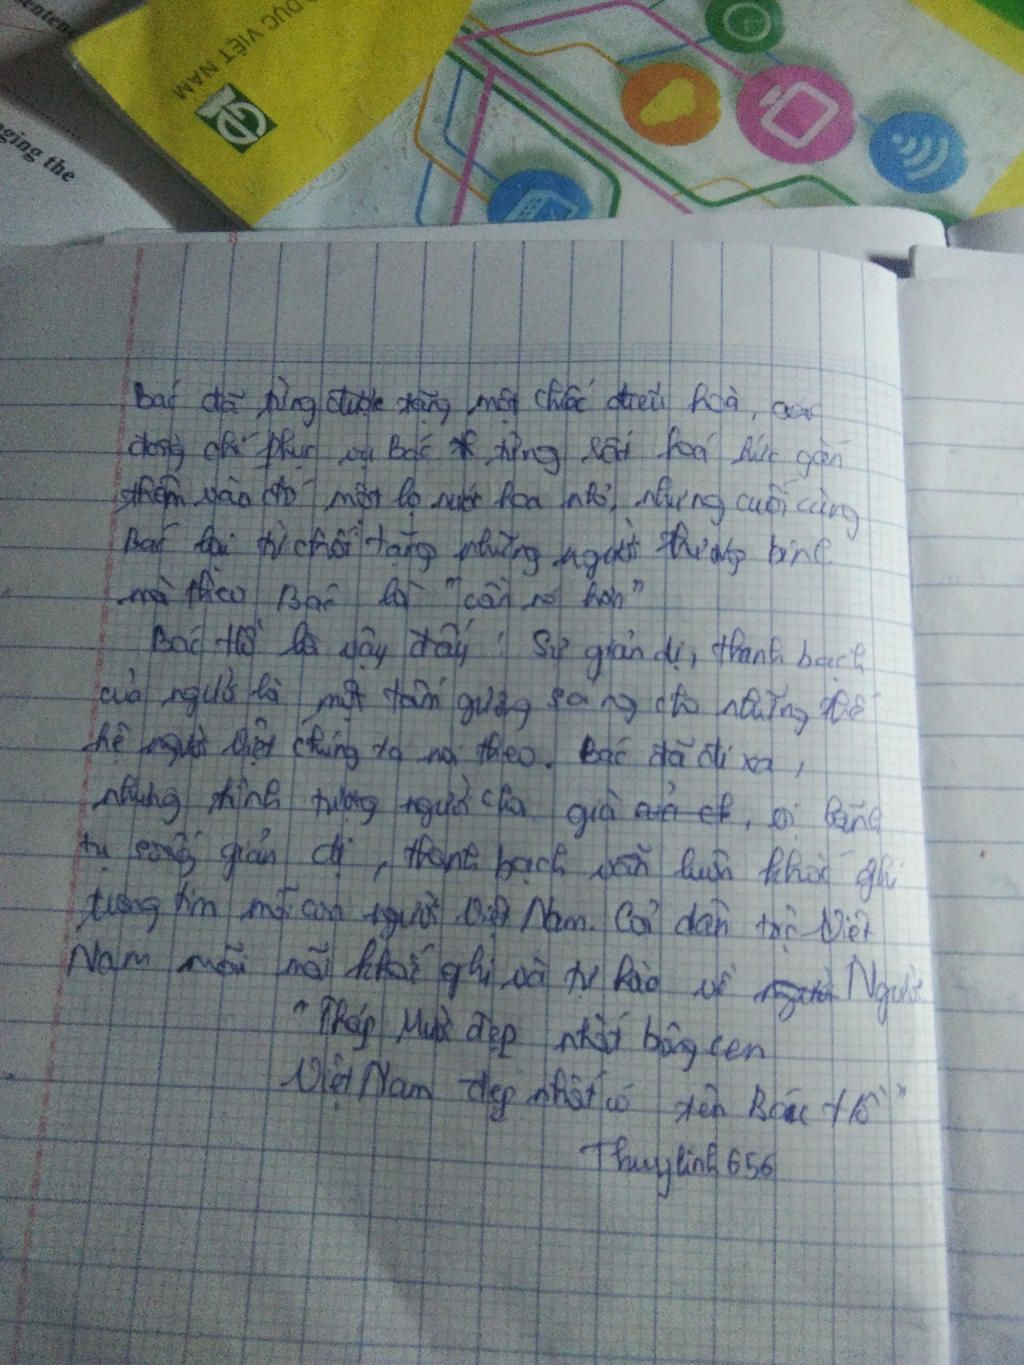 sentenc
nging the
DỤC VIỆT NAM
Bác đã từng được tặng một chiếc điều hoà, các
đồng chí phục vụ Bác từng gắn
thêm vào đó một lọ nước hoa nhỏ, nhưng cuối cùng
Bác lại từ chối tặng những người thương binh
mà theo Bác là "cần nó hơn"
Bác Hồ là vậy đấy! Sự giản dị, thanh bạch
của người là một tấm gương sáng cho những thế
hệ người Việt chúng ta noi theo. Bác đã đi xa,
nhưng hình tượng người cha già, vị lãnh
tụ sống giản dị, thanh bạch vẫn luôn khắc ghi
trong tim mỗi con người Việt Nam. Cả dân tộc Việt
Nam mãi mãi khắc ghi và tự hào về Người
"Tháp Mười đẹp nhất bông sen
Việt Nam đẹp nhất có tên Bác Hồ"
Thuylinh656